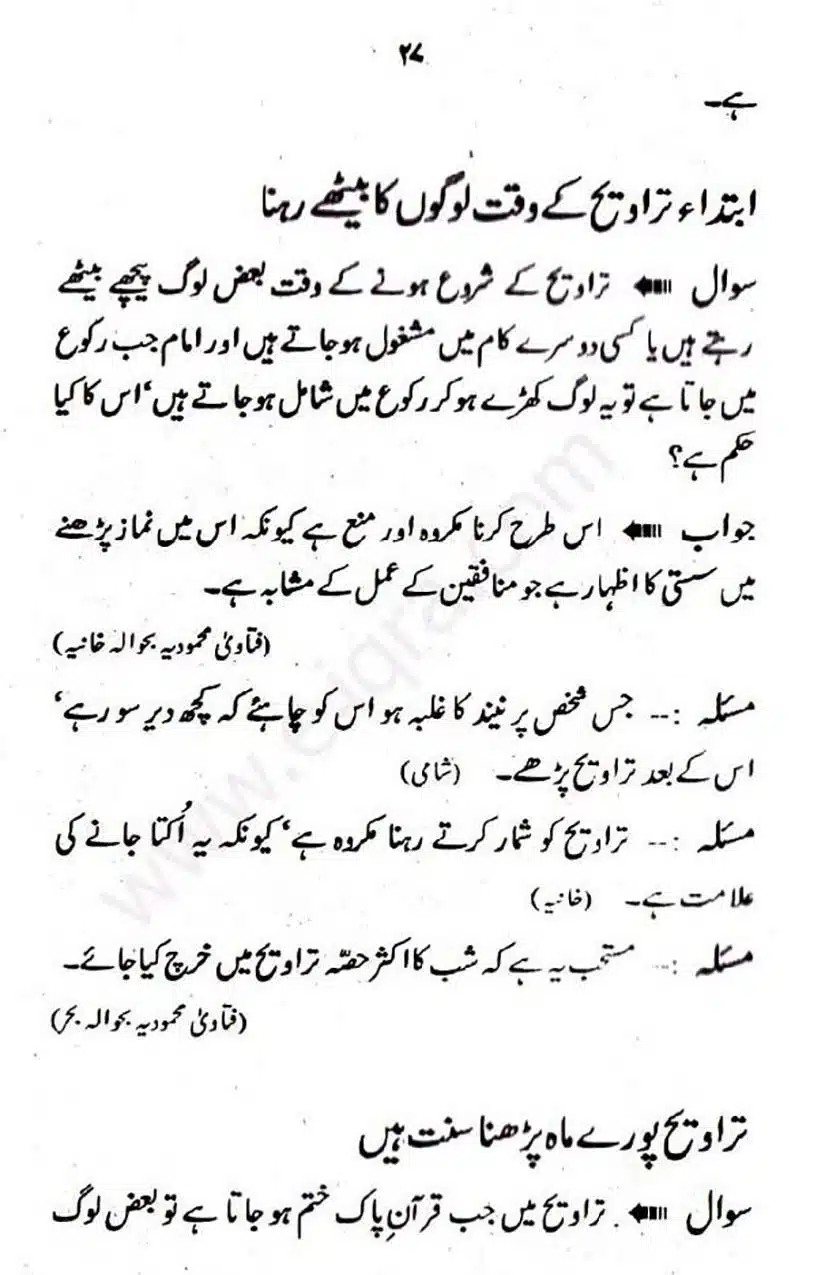 ۲۷
ہے۔
ابتداء تراویح کے وقت لوگوں کا بیٹھے رہنا
سوال تراویح کے شروع ہونے کے وقت بعض لوگ پیچھے بیٹھے
رہتے ہیں یا کسی دوسرے کام میں مشغول ہو جاتے ہیں اور امام جب رکوع
میں جاتا ہے تو یہ لوگ کھڑے ہو کر رکوع میں شامل ہو جاتے ہیں‘ اس کا کیا
حکم ہے؟
جواب اس طرح کرنا مکروہ اور منع ہے کیونکہ اس میں نماز پڑھنے
میں سستی کا اظہار ہے جو منافقین کے عمل کے مشابہ ہے۔
(فتاویٰ محمودیہ بحوالہ خانیہ)
مسئلہ :-- جس شخص پر نیند کا غلبہ ہو اس کو چاہئے کہ کچھ دیر سو رہے‘
اس کے بعد تراویح پڑھے۔ (شامی)
مسئلہ :-- تراویح کو شمار کرتے رہنا مکروہ ہے‘ کیونکہ یہ اُکتا جانے کی
علامت ہے۔ (خانیہ)
مسئلہ :-- مستحب یہ ہے کہ شب کا اکثر حصّہ تراویح میں خرچ کیا جائے۔
(فتاویٰ محمودیہ بحوالہ بحر)
تراویح پورے ماہ پڑھنا سنت ہیں
سوال تراویح میں جب قرآنِ پاک ختم ہو جاتا ہے تو بعض لوگ
www.e-iqra.com